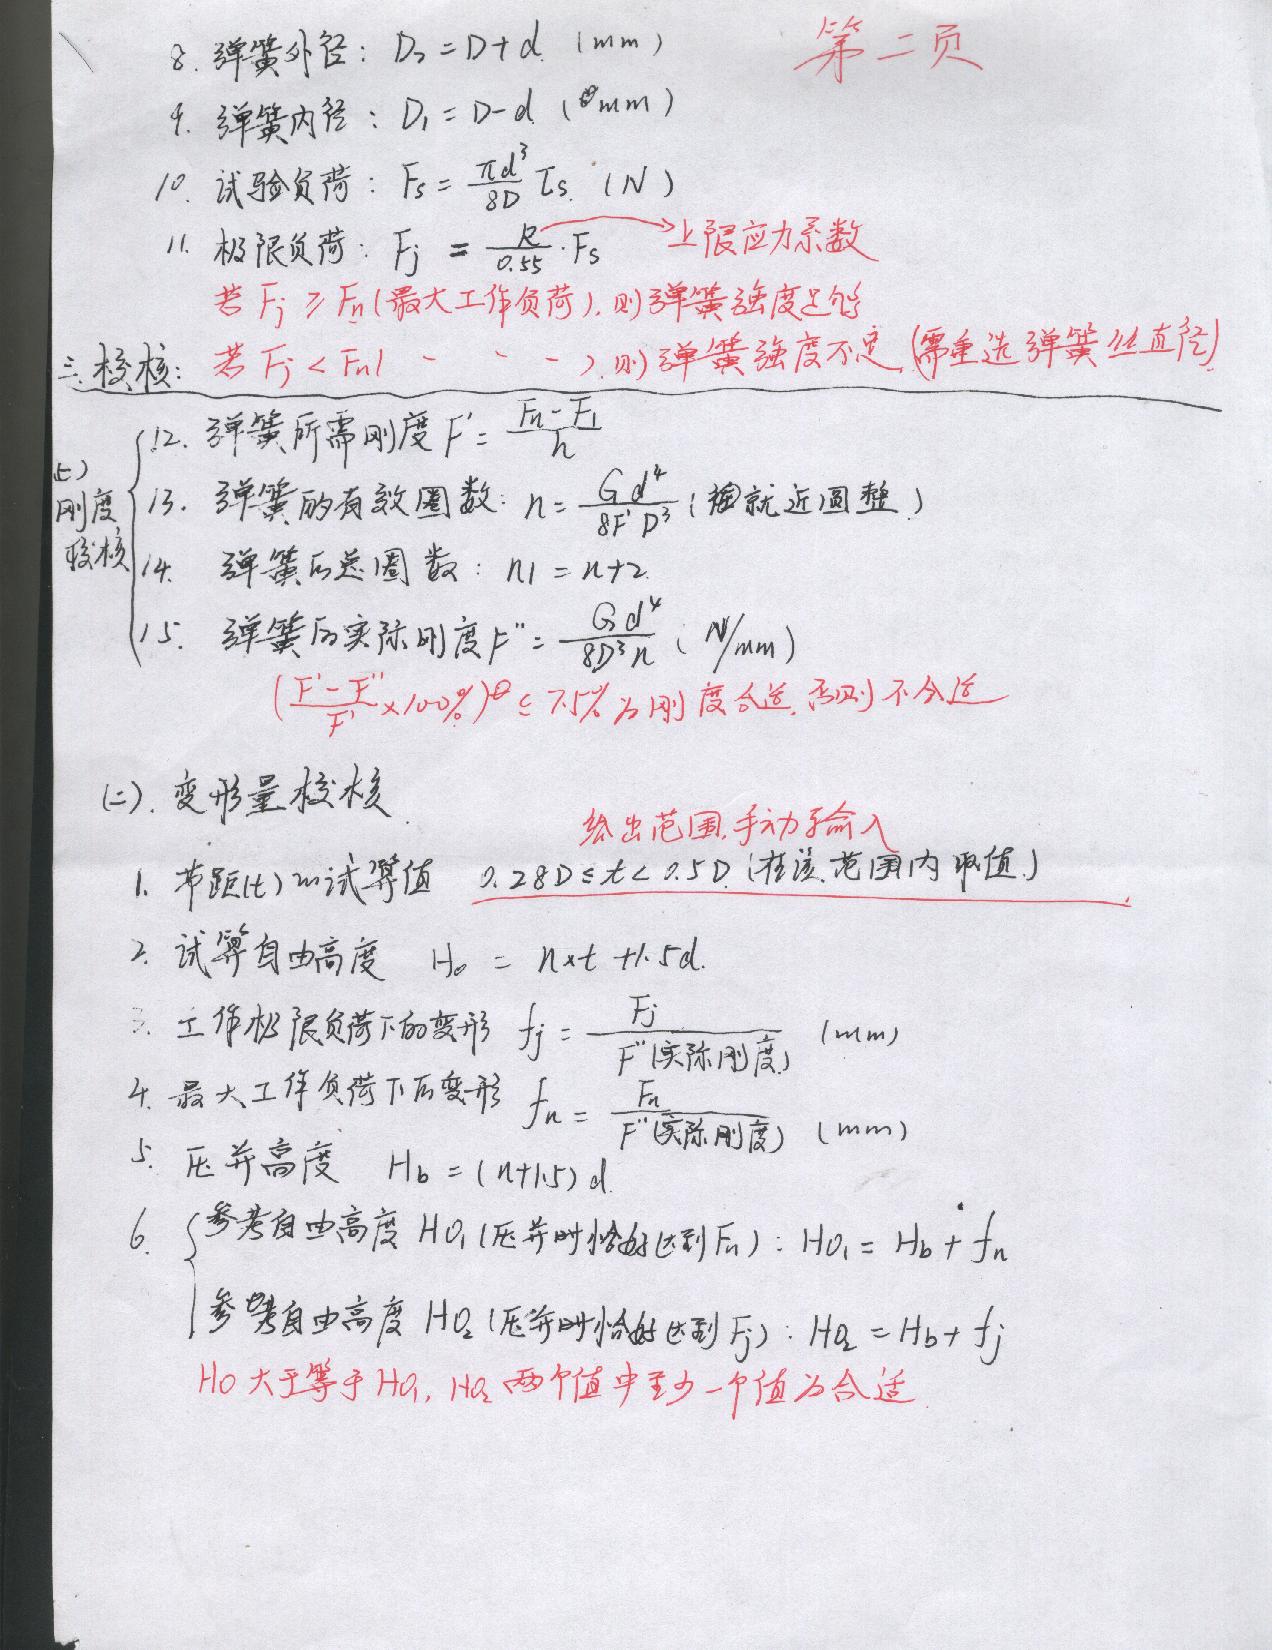 第二页
8. 弹簧外径: D₂=D+d (mm)
9. 弹簧内径: D₁=D-d (mm)
10. 试验负荷: Fs=πd³/8D τs (N)
11. 极限负荷: Fj = k/0.55·Fs → 上限应力系数
若 Fj ≥ Fn(最大工作负荷), 则弹簧强度足够
三.校核: 若 Fj < Fn( - - - ), 则弹簧强度不足(需重选弹簧丝直径)
(七) 刚度校核
12. 弹簧所需刚度 F'= (Fn-F1)/h
13. 弹簧的有效圈数: n= Gd⁴/8F'D³ (就近圆整)
14. 弹簧的总圈数: n1=n+2
15. 弹簧的实际刚度F''= Gd⁴/8D³n (N/mm)
((F'-F'')/F' ×100%) ≤ 7.5% 为刚度合适, 否则不合适
(二). 变形量校核
给出范围,手动输入
1. 节距(t)的试算值 0.28D≤t<0.5D (在该范围内取值)
2. 试算自由高度 H₀ = n×t+1.5d.
3. 工作极限负荷下的变形 fj= Fj/F''(实际刚度) (mm)
4. 最大工作负荷下的变形 fn= Fn/F''(实际刚度) (mm)
5. 压并高度 Hb=(n+1.5)d
6. 参考自由高度HO₁(压并时恰好达到Fn): HO₁=Hb+fn
参考自由高度HO₂(压并时恰好达到Fj): HO₂=Hb+fj
HO大于等于HO₁, HO₂两个值中至少一个值为合适